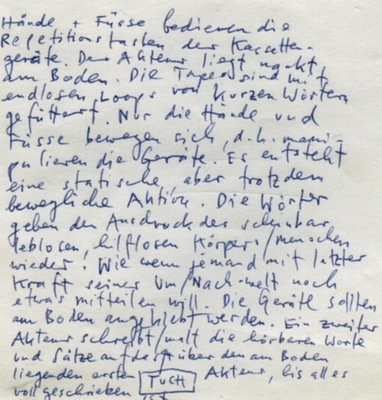 Hände + Füsse bedienen die
Repetitionstasten der Kassetten-
geräte. Der Akteur liegt nackt
am Boden. Die Tapes sind mit
endlosen Loops von kurzen Wörtern
gefüttert. Nur die Hände und
Füsse bewegen sich, d.h. mani-
pulieren die Geräte. Es entsteht
eine statische aber trotzdem
bewegliche Aktion. Die Wörter
geben den Ausdruck des scheinbar
leblosen, hilflosen Körpers/menschen
wieder. Wie wenn jemand mit letzter
Kraft seiner Um/Nach-welt noch
etwas mitteilen will. Die Geräte sollten
am Boden angeklebt werden. Ein zweiter
Akteur schreibt/malt die hörbaren Worte
und Sätze auf das über den am Boden
liegenden ersten TUCH Akteur, bis alles
voll geschrieben ist